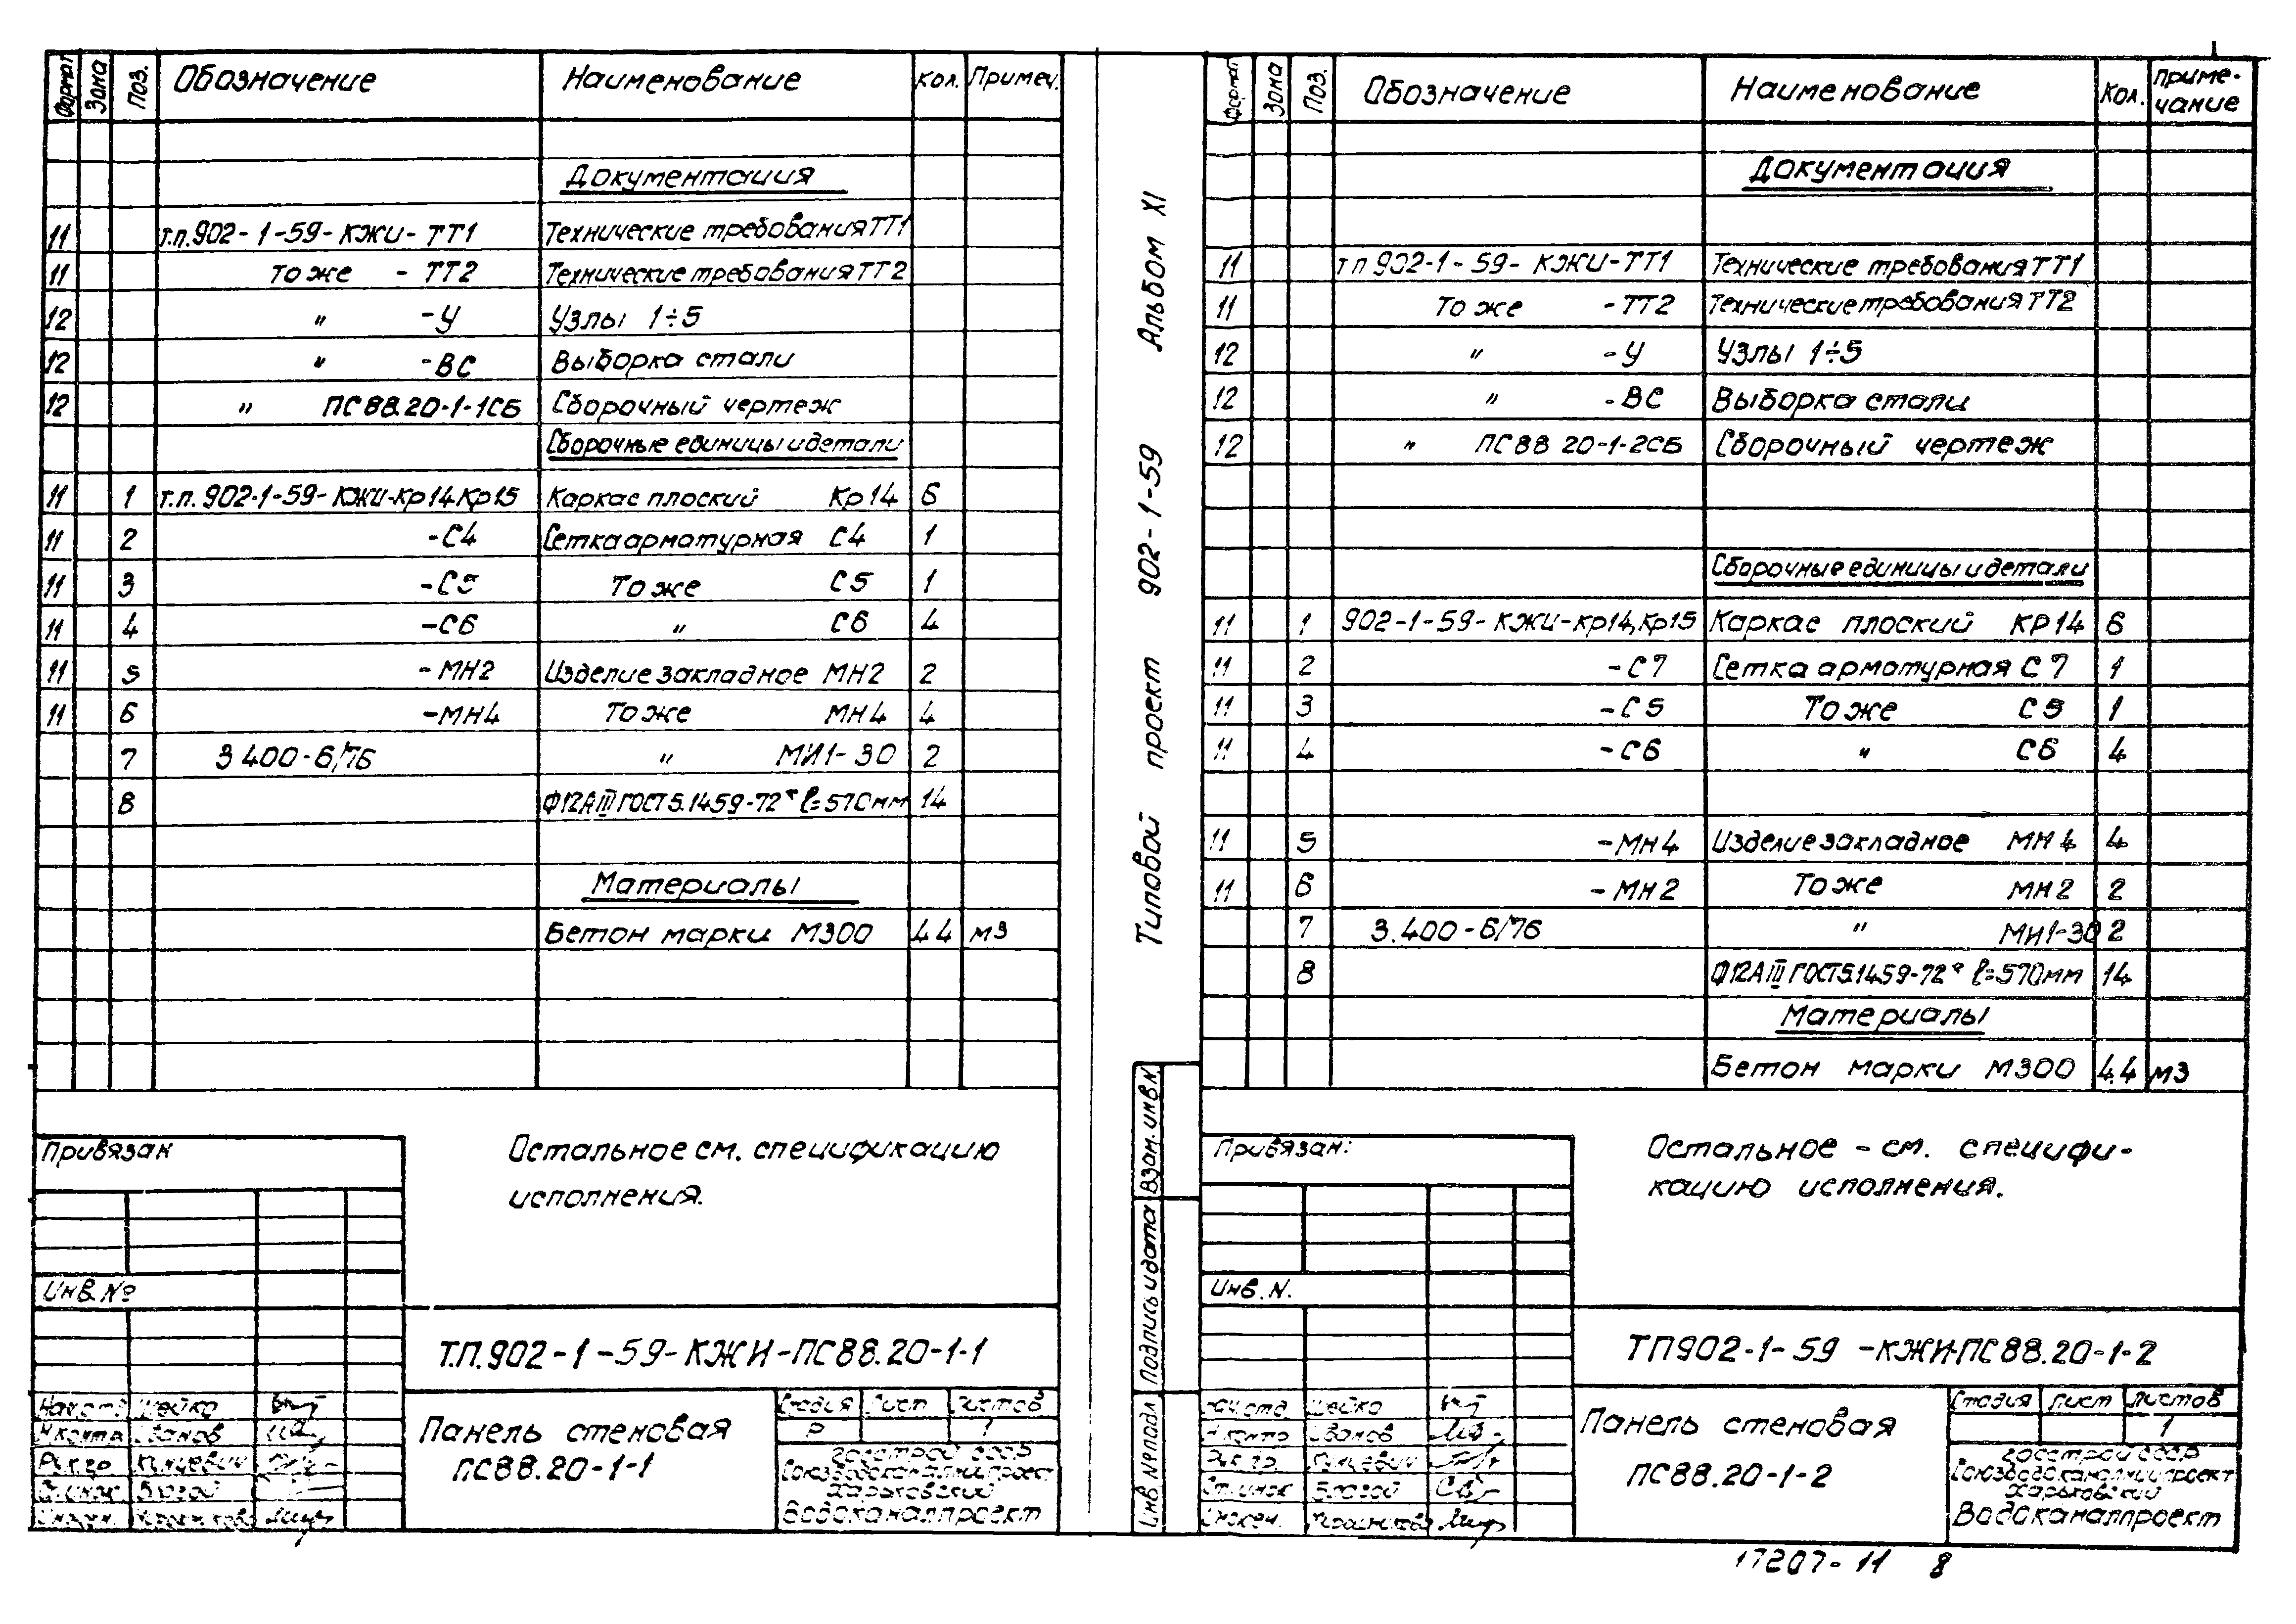 Формат Зона Поз. Обозначение Наименование Кол. Примеч.
Документация
11 т.п.902-1-59-КЖИ-ТТ1 Технические требования ТТ1
11 То же -ТТ2 Технические требования ТТ2
12 " -У Узлы 1÷5
12 " -ВС Выборка стали
12 " ПС88.20-1-1СБ Сборочный чертеж
Сборочные единицы и детали
11 1 т.п.902-1-59-КЖИ-Кр14,Кр15 Каркас плоский Кр14 6
11 2 -С4 Сетка арматурная С4 1
11 3 -С5 То же С5 1
11 4 -С6 " С6 4
11 5 -МН2 Изделие закладное МН2 2
11 6 -МН4 То же МН4 4
7 3 400-6/76 " МИ1-30 2
8 Ф12АIII ГОСТ5.1459-72* ℓ=570мм 14
Материалы
Бетон марки М300 4.4 м3
Остальное см. спецификацию
исполнения.
Привязан
Инв.№
Т.П.902-1-59-КЖИ-ПС88.20-1-1
Нач.отд. Шейко
Н.контр. Иванов
Рук.гр.
Ст.инж. Благой
Инжен.
Панель стеновая
ПС88.20-1-1
Стадия Лист Листов
Р 1
Госстрой СССР
Союзводоканалниипроект
Харьковский
Водоканалпроект
Типовой проект 902-1-59 Альбом XI
Взам.инв.N
Подпись и дата
Инв.N подл
Формат Зона Поз. Обозначение Наименование Кол. Приме-
чание
Документация
11 т п 902-1-59-КЖИ-ТТ1 Технические требования ТТ1
11 То же -ТТ2 Технические требования ТТ2
12 " -У Узлы 1÷5
12 " -ВС Выборка стали
12 " ПС88 20-1-2СБ Сборочный чертеж
Сборочные единицы и детали
11 1 902-1-59-КЖИ-Кр14,Кр15 Каркас плоский КР14 6
11 2 -С7 Сетка арматурная С7 1
11 3 -С5 То же С5 1
11 4 -С6 " С6 4
11 5 -МН4 Изделие закладное МН4 4
11 6 -МН2 То же МН2 2
7 3.400-6/76 " МИ1-30 2
8 Ф12АIII ГОСТ5.1459-72* ℓ=570мм 14
Материалы
Бетон марки М300 4.4 м3
Остальное - см. специфи-
кацию исполнения.
Привязан:
Инв.N.
ТП902-1-59-КЖИ-ПС88.20-1-2
Нач.отд Шейко
Н.контр Иванов
Рук.гр.
Ст.инж Благой
Инжен.
Панель стеновая
ПС88.20-1-2
Стадия Лист Листов
1
Госстрой СССР
Союзводоканалниипроект
Харьковский
Водоканалпроект
17207-11 8